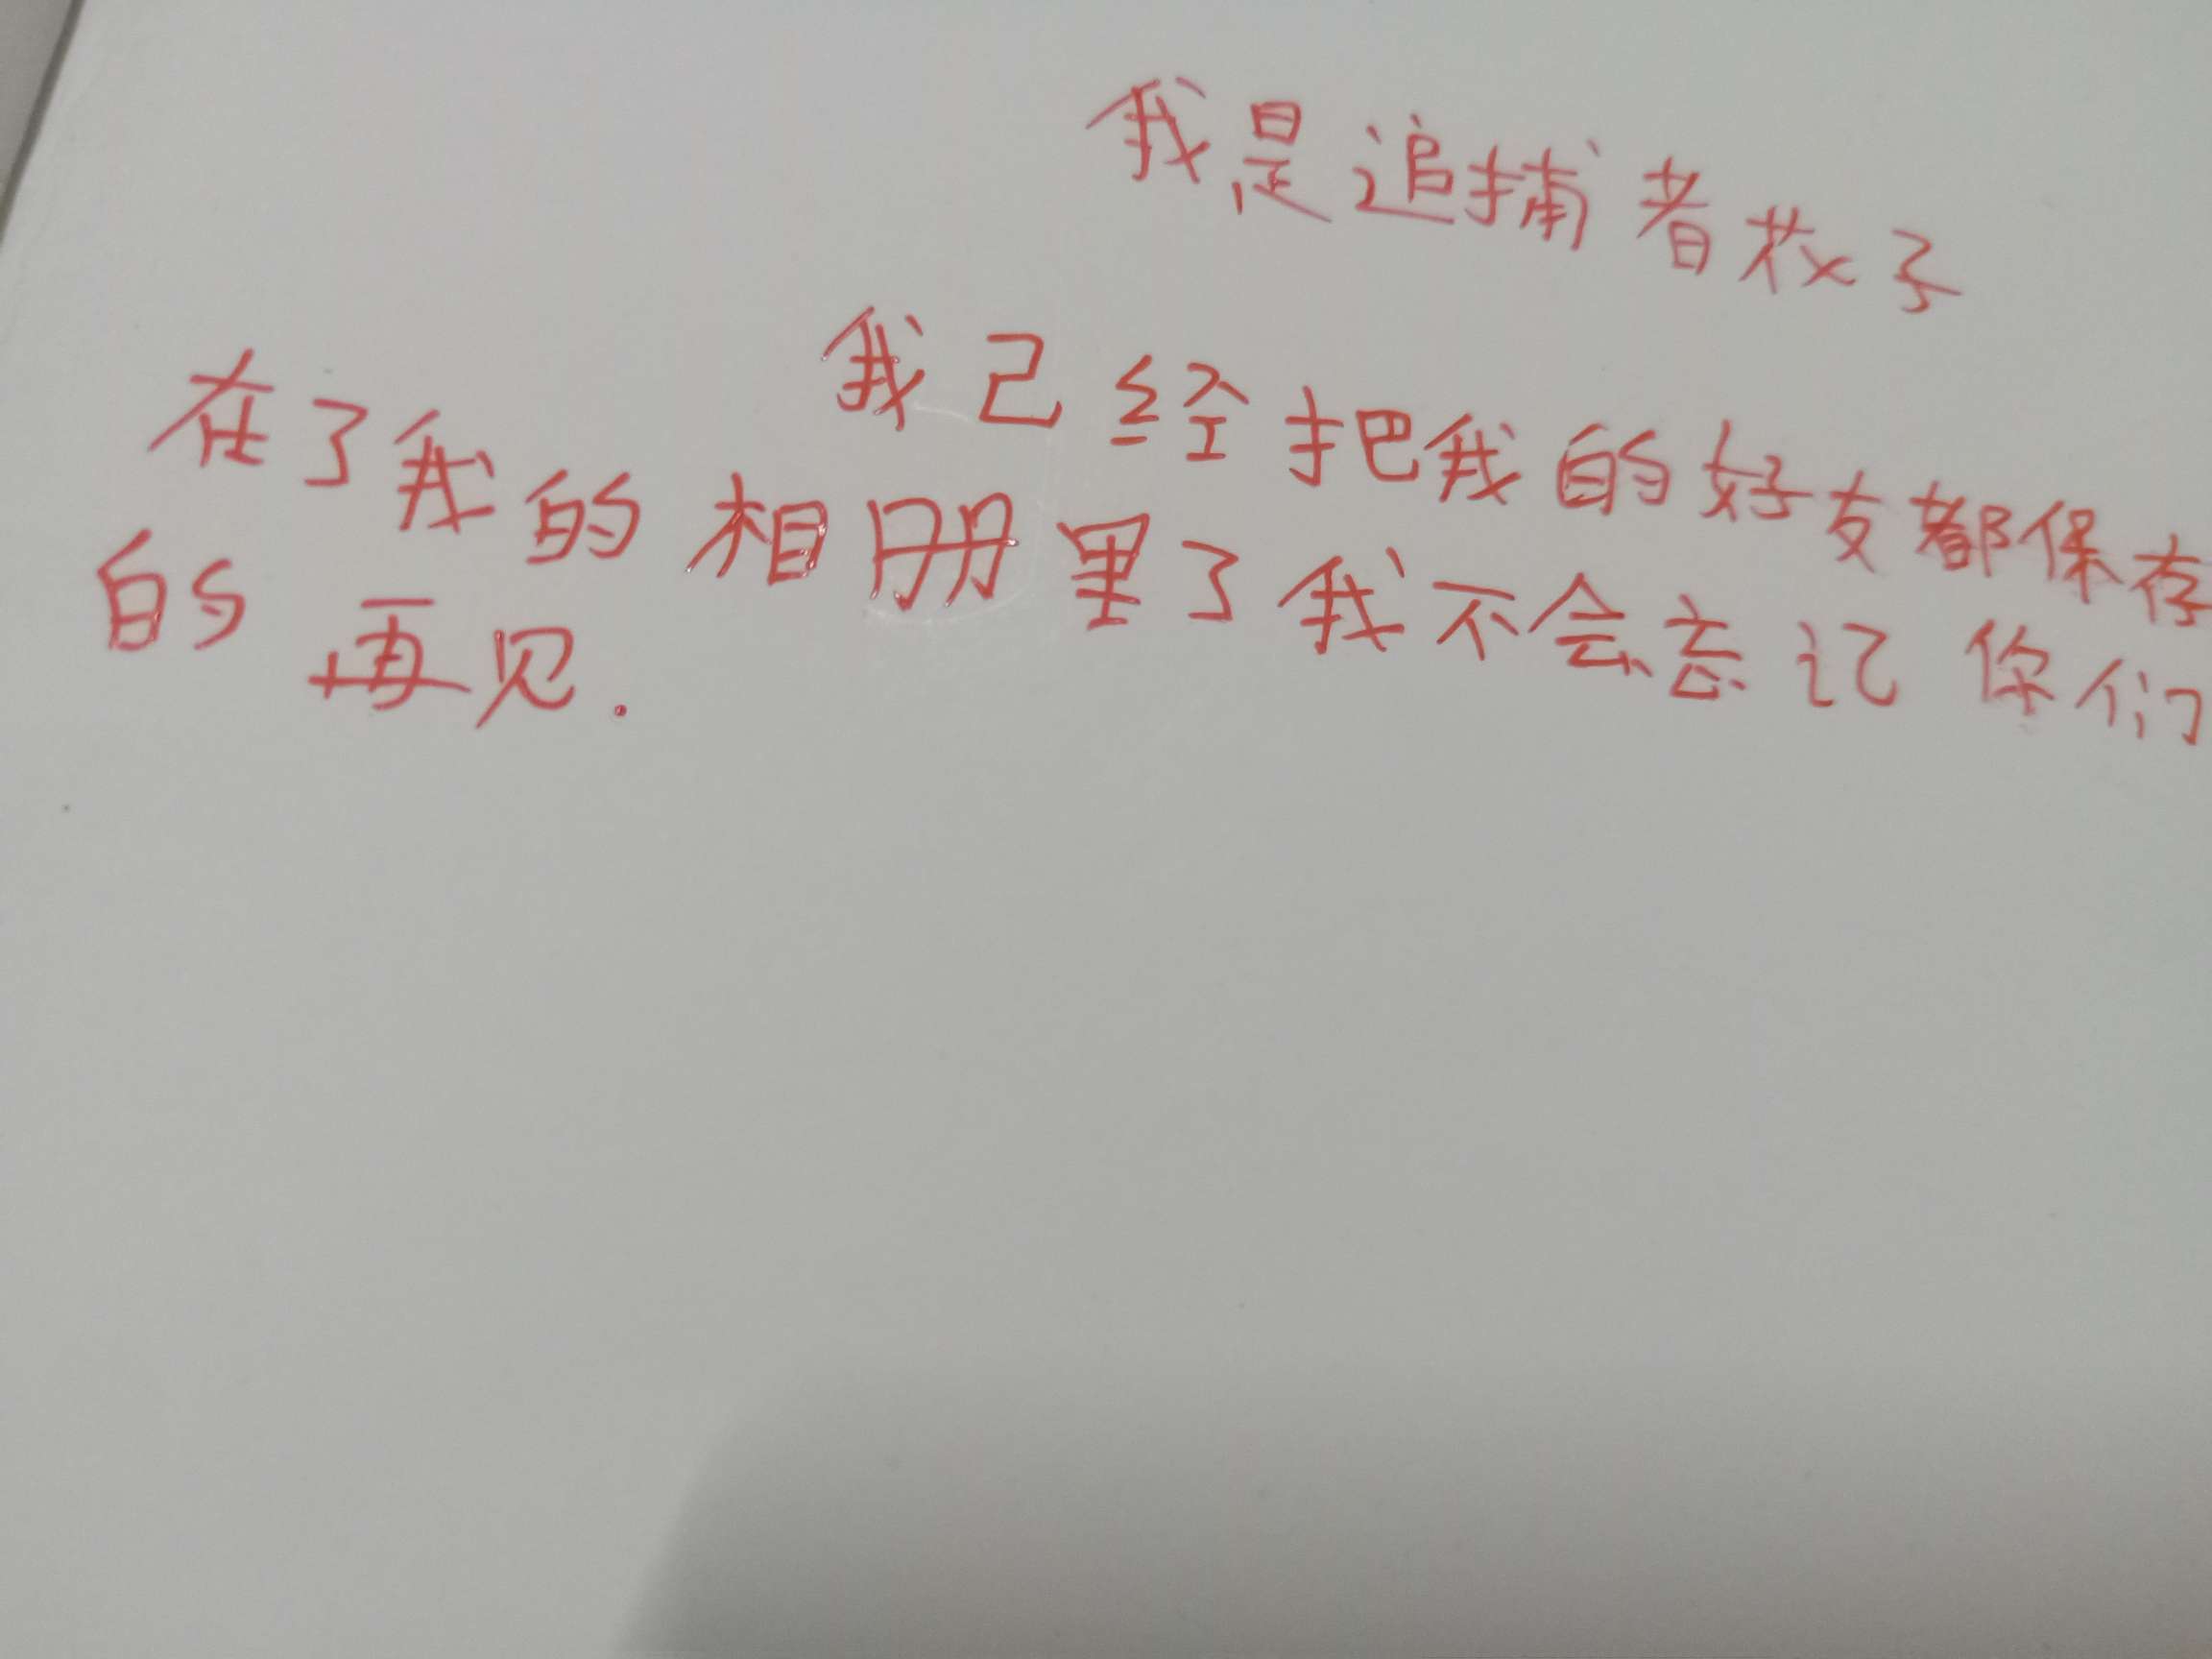 我是追捕者子
我己经把我的好友都保存
在了我的相册里了我不会忘记你们
的再见.